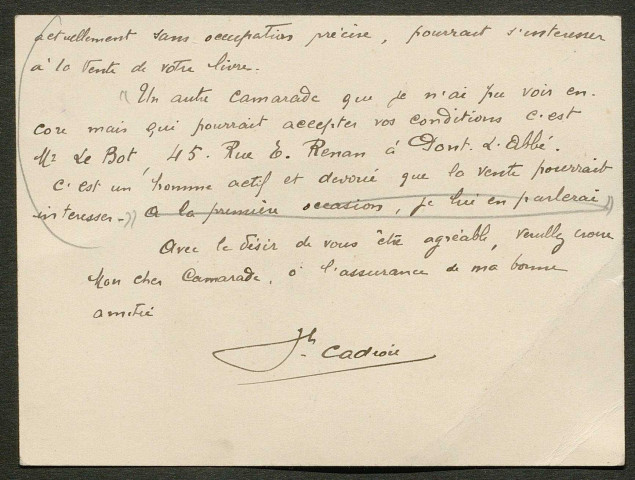 actuellement sans occupation précise, pourrait s'intéresser
à la vente de votre livre.
"Un autre camarade que je n'ai pu voir en-
core mais qui pourrait accepter vos conditions c'est
Mr Le Bot, 45. Rue E. Renan à Pont-L'Abbé.
C'est un homme actif et dévoué que la vente pourrait
intéresser." à la première occasion, je lui en parlerai"
Avec le désir de vous être agréable, veuillez croire
Mon cher Camarade, à l'assurance de ma bonne
amitié
Jh. Cadiou